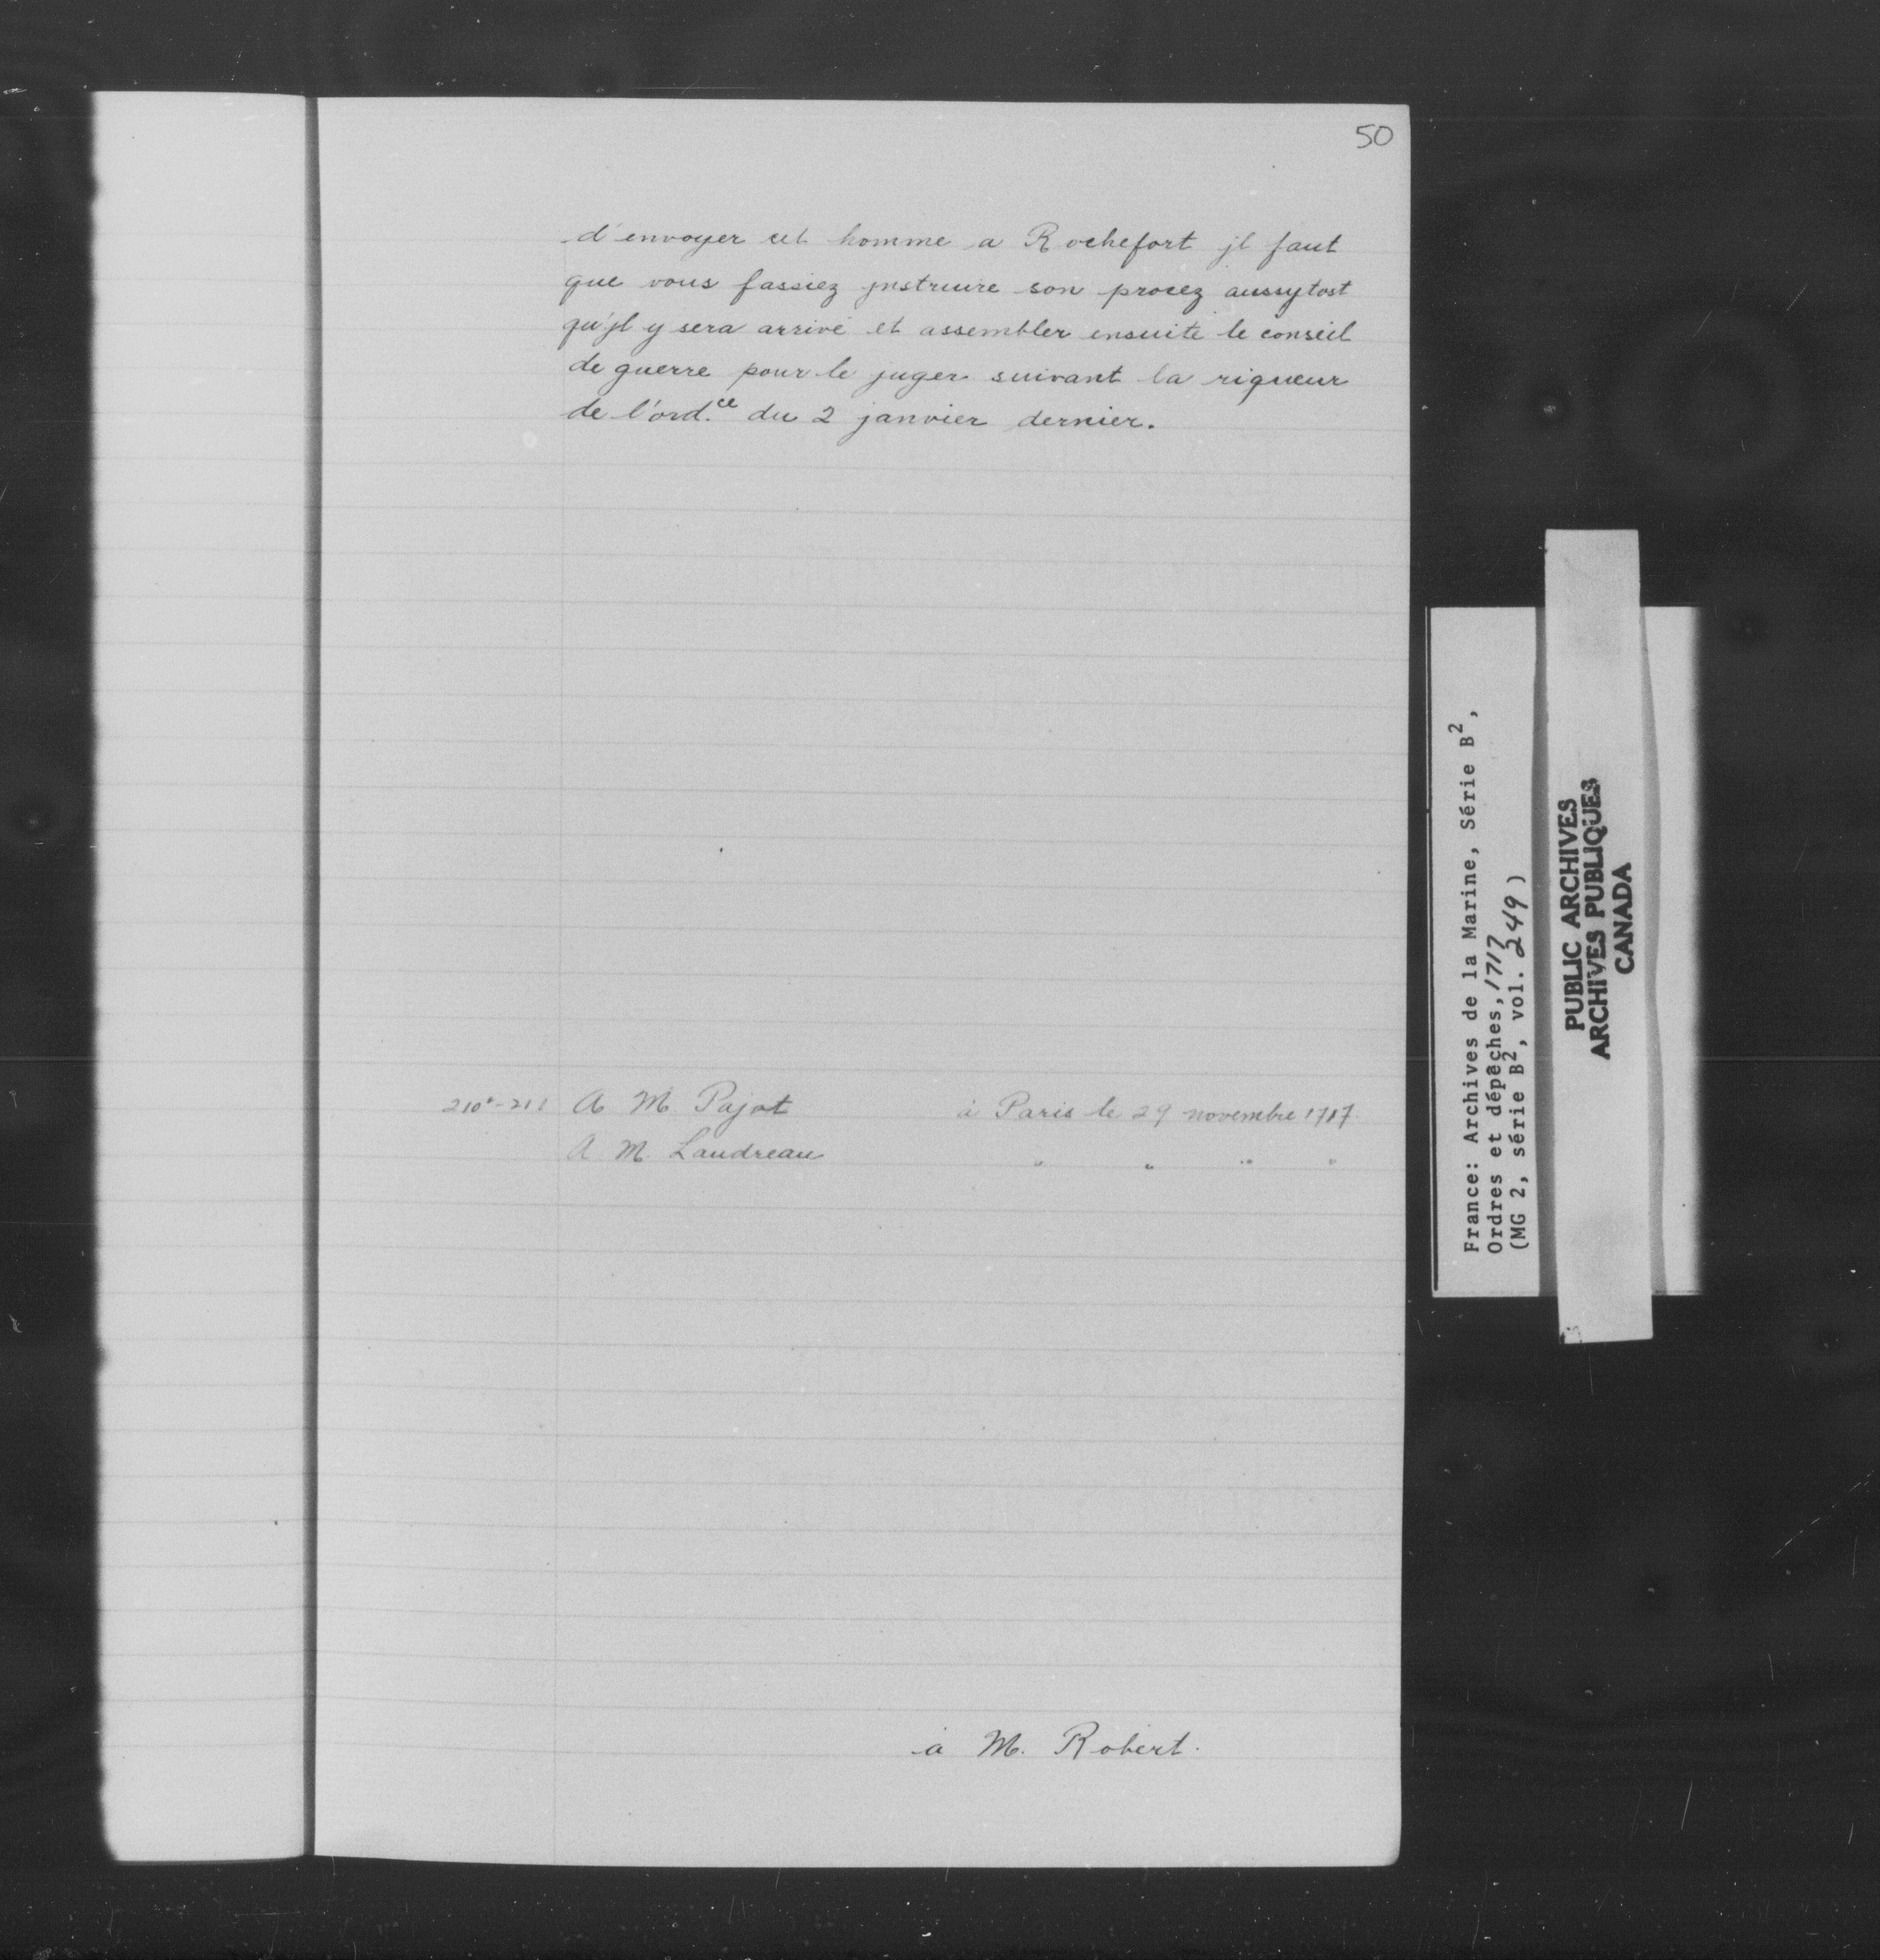 50
d'envoyer cet homme a Rochefort jl faut
que vous fassiez jnstruire son procez aussytost
qu'jl y sera arrivé et assembler ensuite le conseil
de guerre pour le juger suivant la rigueur
de l'ord.ce du 2 janvier dernier.
210v-211 A M. Pajot à Paris le 29 novembre 1717.
A M. Landreau " " " "
à M. Robert.
France: Archives de la Marine, Série B2,
Ordres et dépêches, 1717
(MG 2, série B2, vol. 249)
PUBLIC ARCHIVES
ARCHIVES PUBLIQUES
CANADA